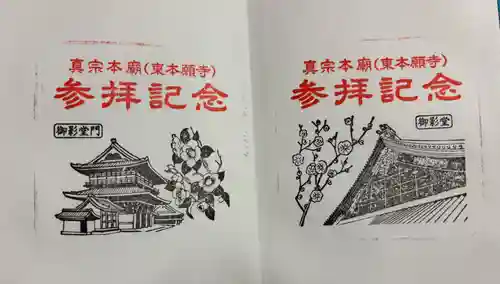 真宗本廟(東本願寺)
参拝記念
御影堂門
真宗本廟(東本願寺)
参拝記念
御影堂